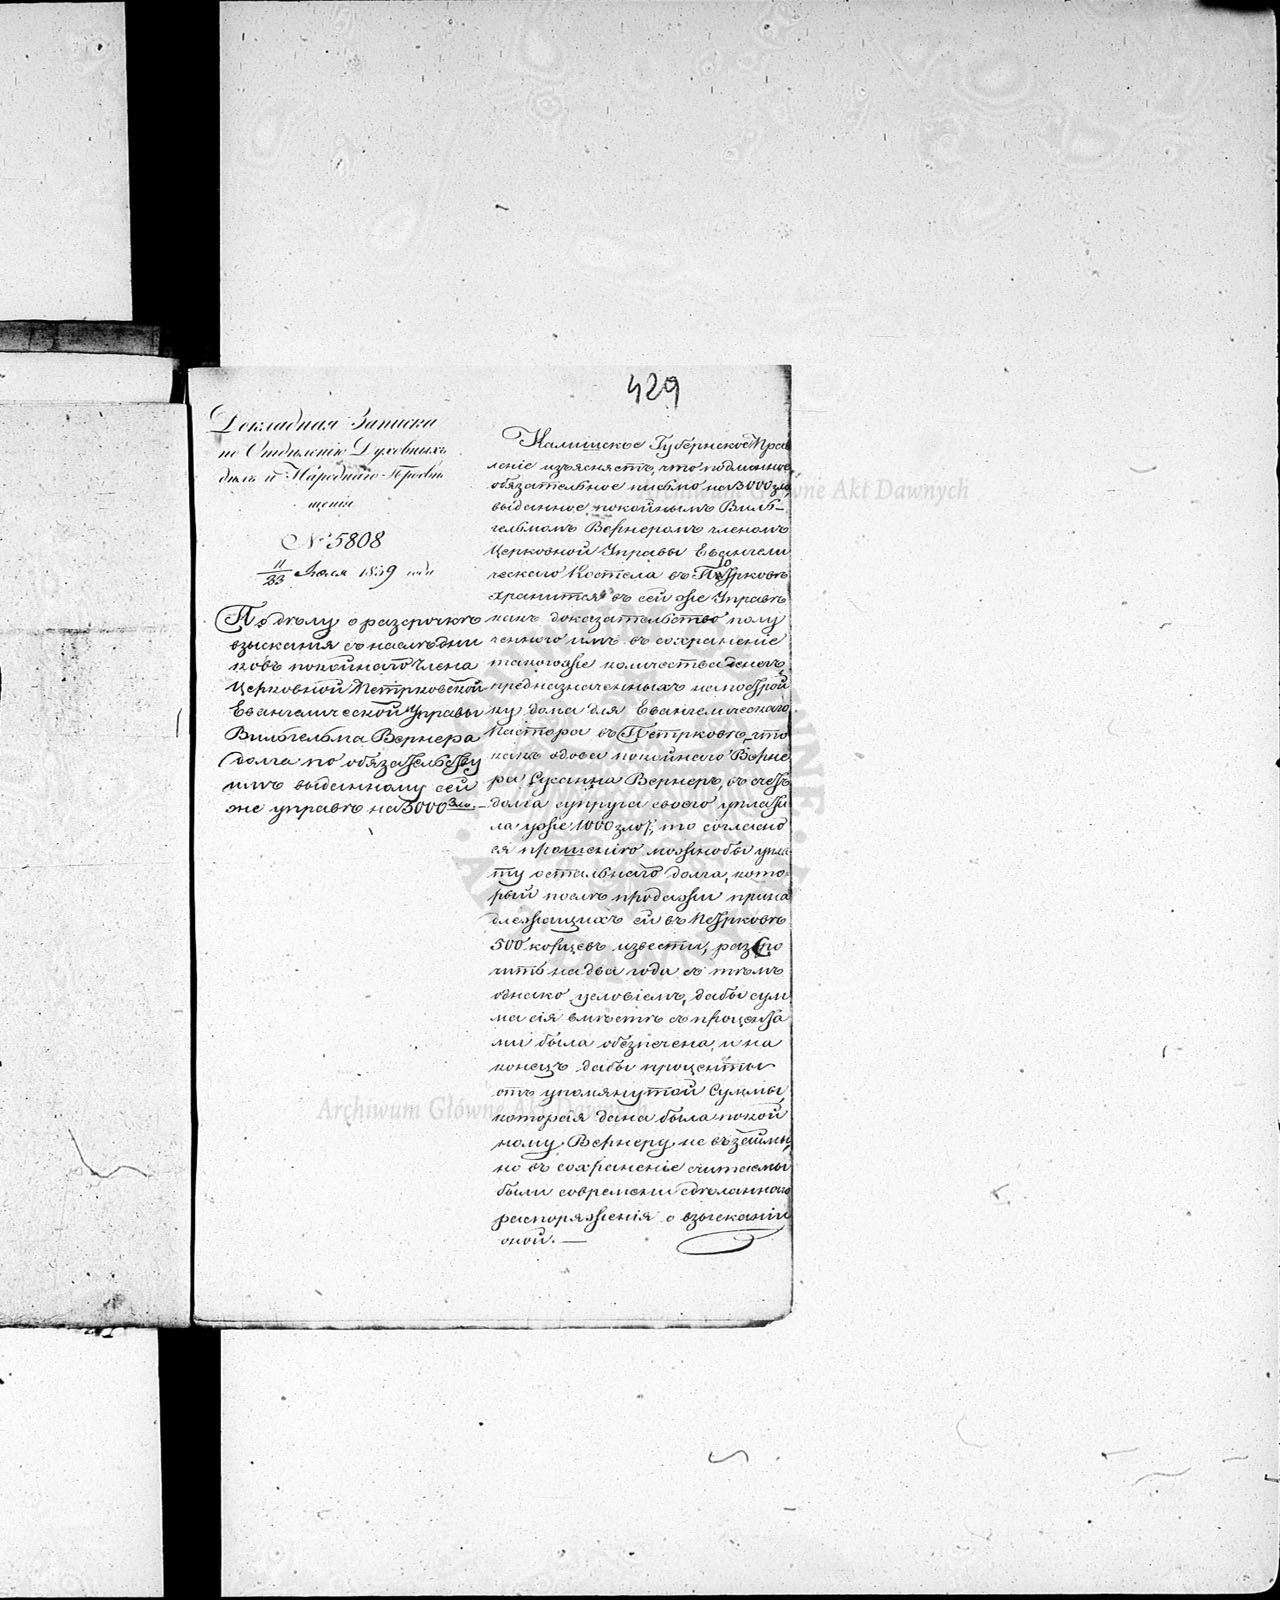 429
Докладная Записка
по Отдѣленію Духовныхъ
дѣлъ и Народнаго Просвѣ
щенія
№ 5808
11/23 Іюля 1839 года
По дѣлу о разсрочкѣ
взысканія съ наслѣдни
ковъ покойнаго Члена
Церковной Петрковской
Евангелической Управы
Вильгельма Вернера
долга по обязательству
имъ выданному сей
же управѣ на 3000 Зло.
Калишское Губернское Прав
леніе изъясняетъ, что подлинное
обязательное письмо на 3000 зло,
выданное покойнымъ Виль-
гельмомъ Вернеромъ членомъ
Церковной Управы Евангели
ческаго Костела въ Петрковѣ
хранится въ сей же Управѣ
какъ доказательство полу
ченнаго имъ въ сохраненіе
такогоже количества денегъ,
предназначенныхъ на построй
ку дома для Евангелическаго
Пастора въ Петрковѣ, что
какъ вдова покойнаго Верне
ра Сусанна Вернеръ, въ счетъ
долга супруга своего уплати
ла уже 1000 злот; то согласно
ея прошенію можнобы упла
ту остальнаго долга, кото
рый послѣ продажи прина
длежащихъ ей въ Петрковѣ
500 корцевъ извести, разсро
чить на два года съ тѣмъ
однако условіемъ, дабы сум
ма сія вмѣстѣ съ процента
ми была обезпечена, и на
конецъ дабы проценты
отъ упомянутой Суммы,
которая дана была покой
ному Вернеру не въ займы,
но въ сохраненіе считаемы
были современи сдѣланнаго
распоряженія о взысканіи
оной. —
Archiwum Główne Akt Dawnych
Archiwum Główne Akt Dawnych